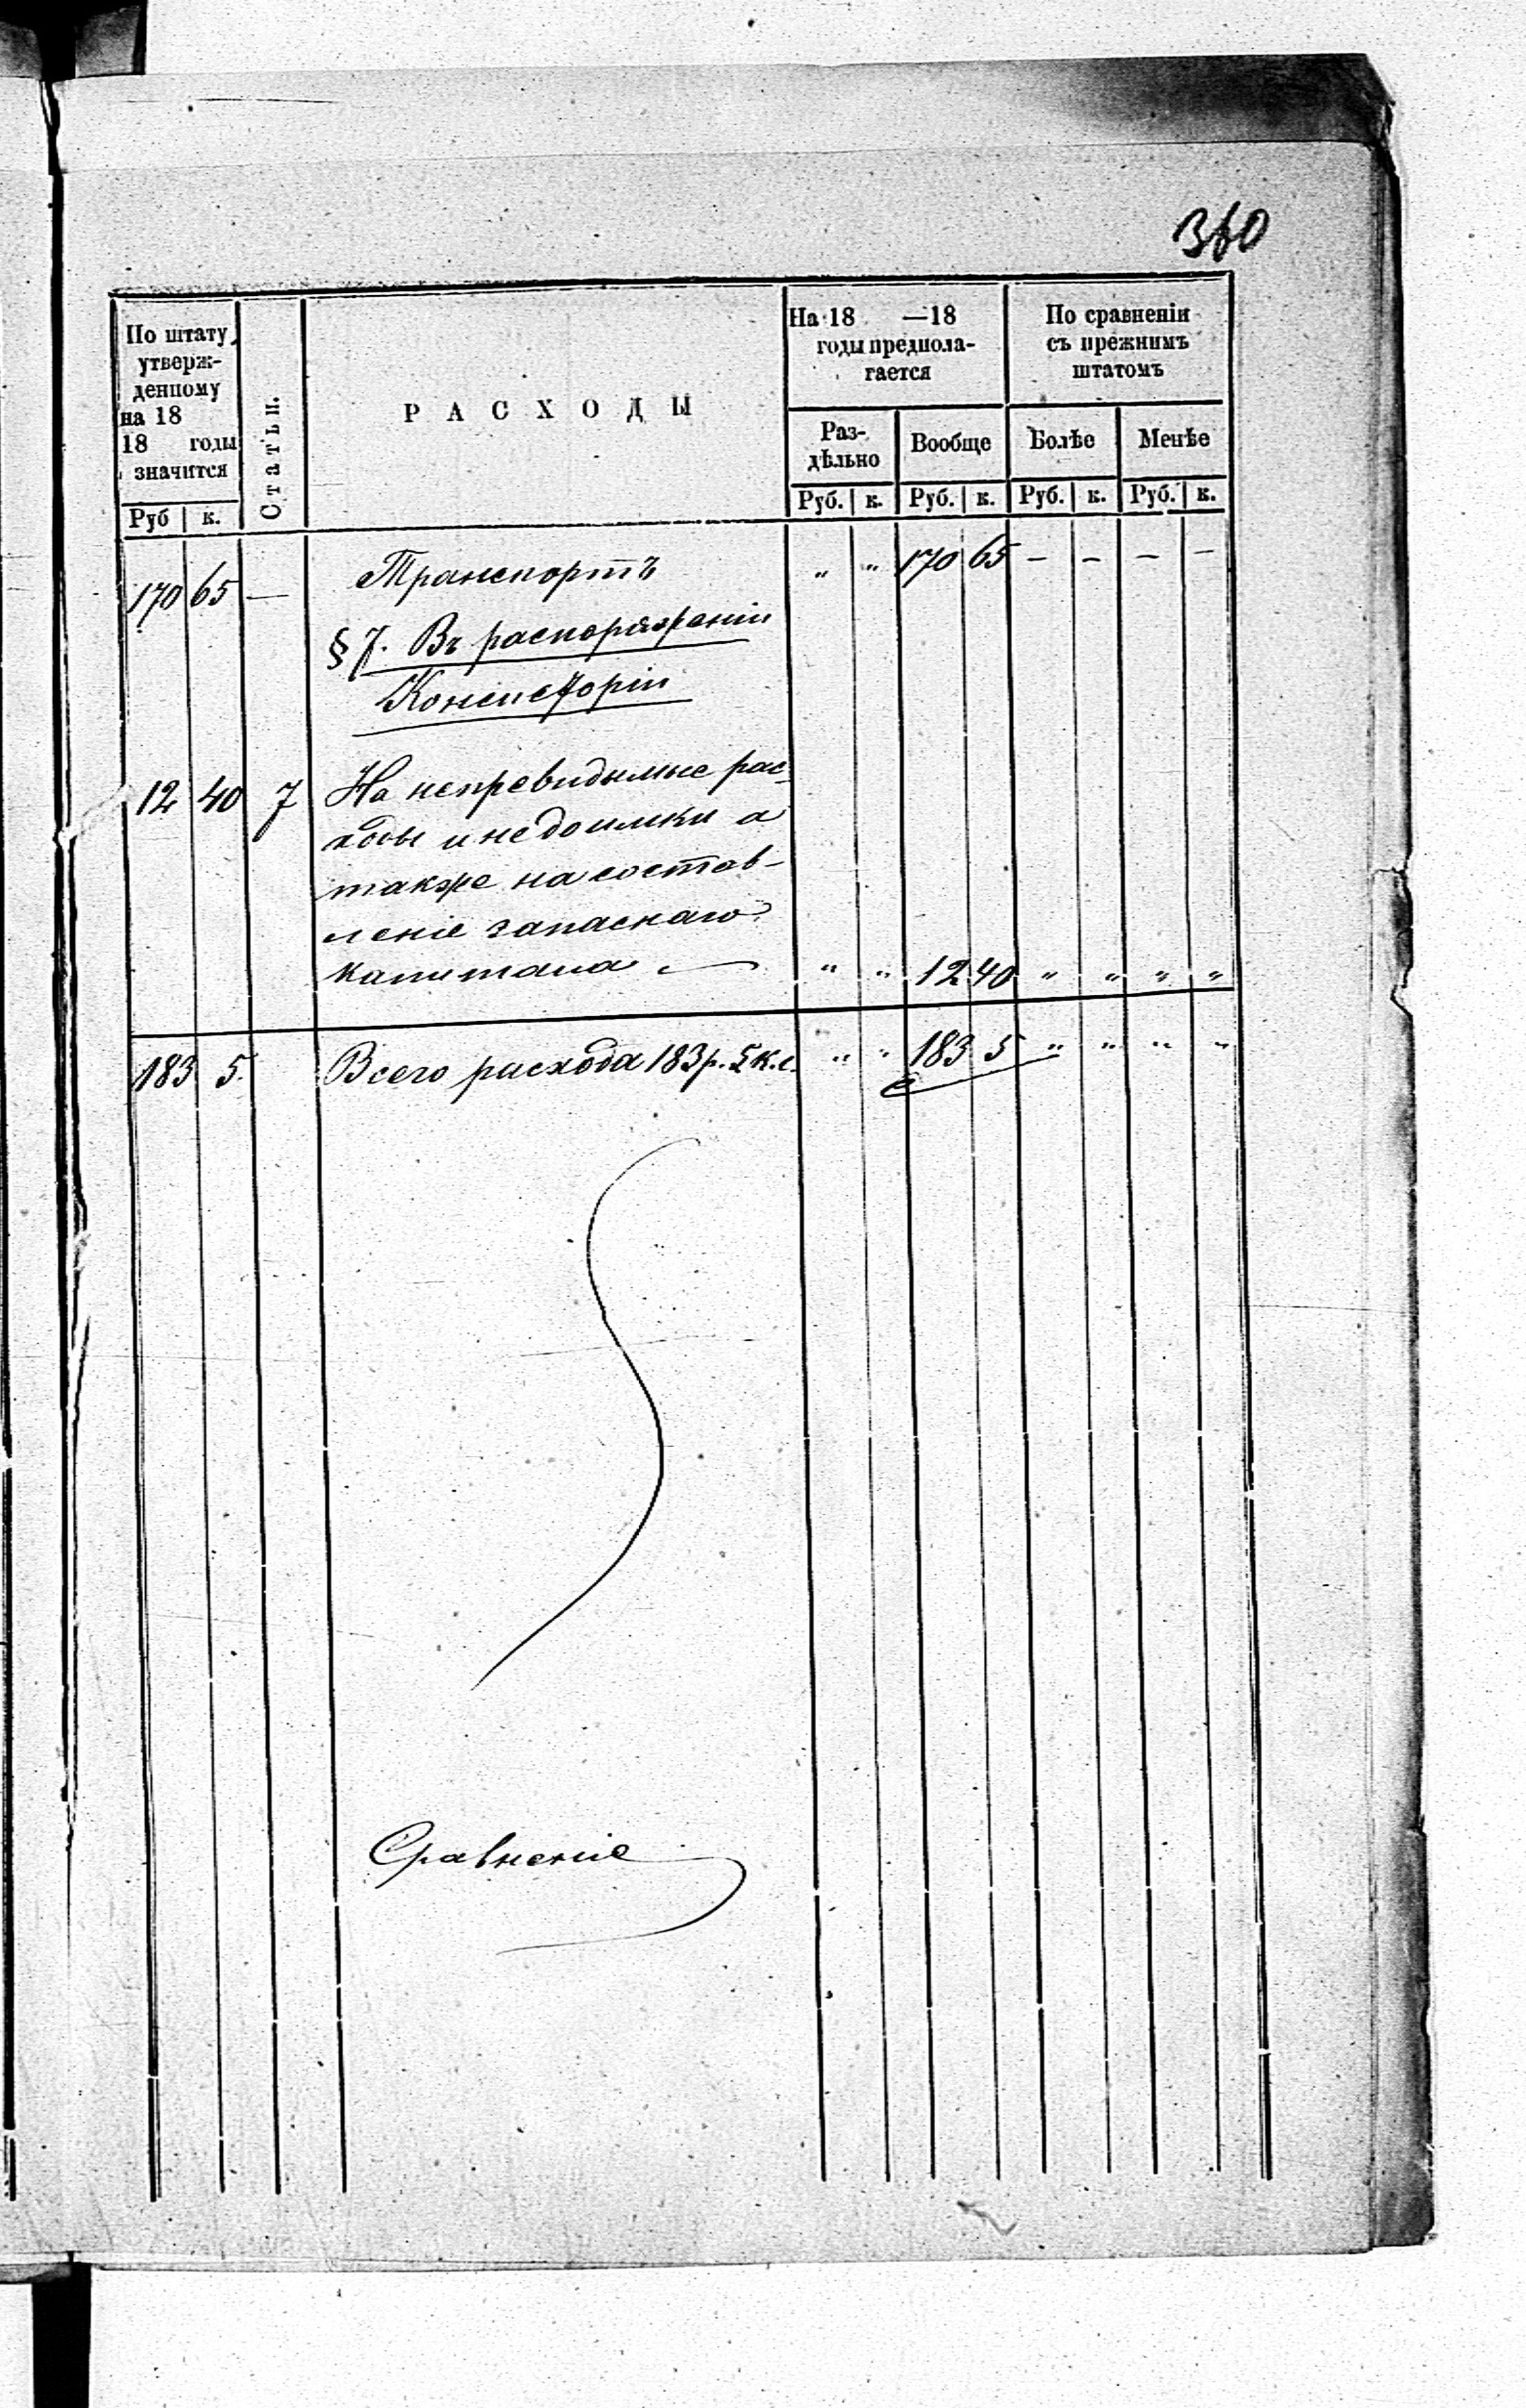 360
По штату утверж-денному на 18 18 годы значится
Статьи.
РАСХОДЫ
На 18 —18 годы предпола-гается
По сравненіи съ прежнимъ штатомъ
Раз-дѣльно Вообще Болѣе Менѣе
Руб к. Руб. к. Руб. к. Руб. к. Руб. к.
170 65 — Транспортъ „ „ 170 65 — — — —
§ 7. Въ распоряженіи
Консисторіи
12 40 7 На непревидимые рас-
ходы и недоимки а
также на состав-
леніе запаснаго
капитала — „ „ 12 40 „ „ „ „
183 5. Всего расхода 183 р. 5 к. с. „ „ 183 5 „ „ „ „
Сравненіе